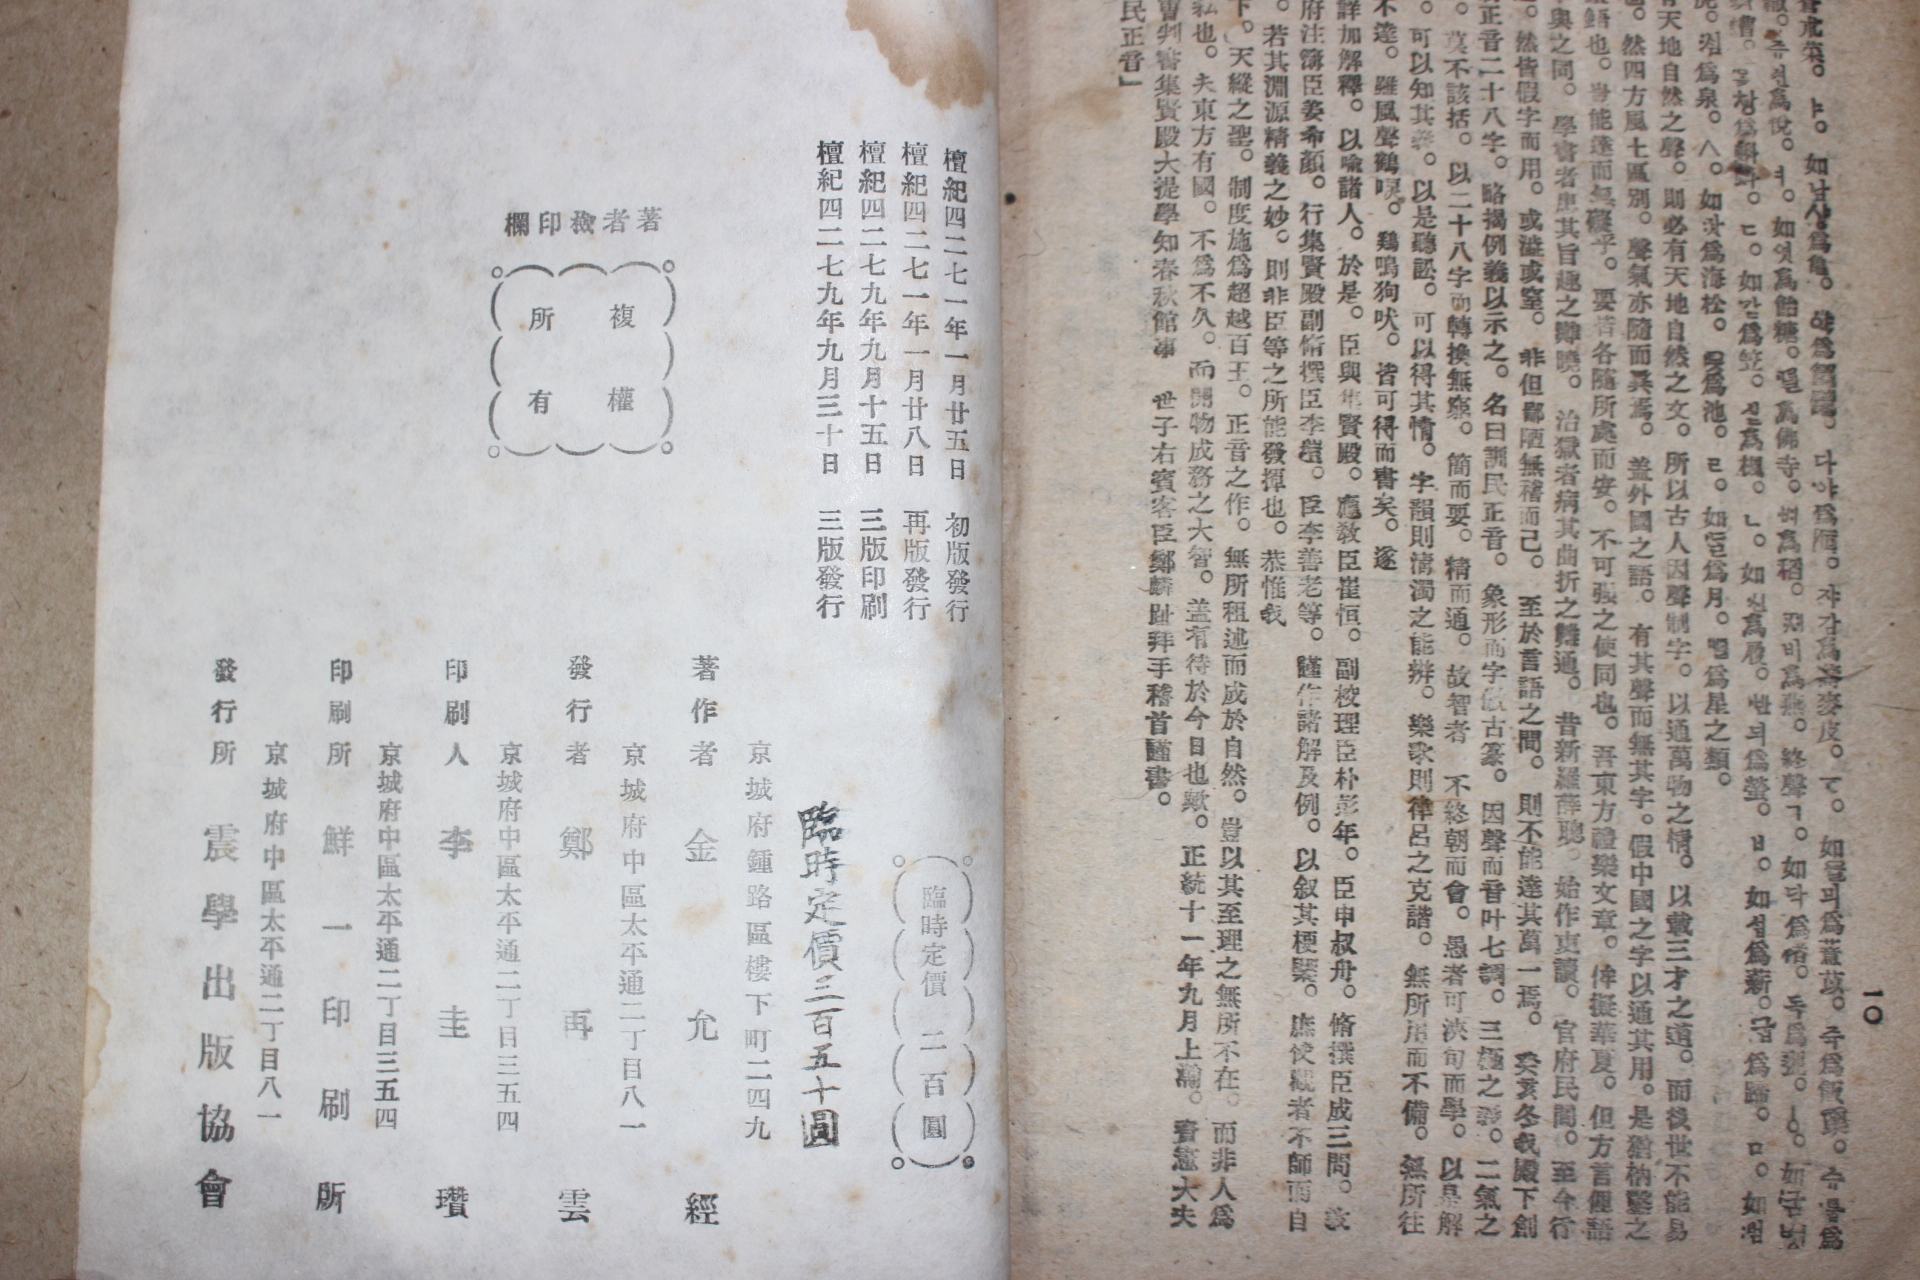 一〇
有天地自然之聲。則必有天地自然之文。所以古人因聲制字。以通萬物之情。以載三才之道。而後世不能易
也。然四方風土區別。聲氣亦隨而異焉。蓋外國之語。有其聲而無其字。假中國之字以通其用。是猶枘鑿之
鉏鋙也。豈能達而無礙乎。要皆各隨所處而安。不可强之使同也。吾東方禮樂文章。侔擬華夏。但方言俚語
不與之同。學書者患其旨趣之難曉。治獄者病其曲折之難通。昔新羅薛聰。始作吏讀。官府民間。至今行
之。然皆假字而用。或澁或窒。非但鄙陋無稽而已。至於言語之間。則不能達其萬一焉。癸亥冬我殿下創
制正音二十八字。略揭例義以示之。名曰訓民正音。象形而字倣古篆。因聲而音叶七調。三極之義。二氣之
妙。莫不該括。以二十八字而轉換無窮。簡而要。精而通。故智者 不終朝而會。愚者可浹旬而學。以是解
書。可以知其義。以是聽訟。可以得其情。字韻則淸濁之能辨。樂歌則律呂之克諧。無所用而不備。無所往
而不達。雖風聲鶴唳。鷄鳴狗吠。皆可得而書矣。遂
命詳加解釋。以喩諸人。於是。臣與集賢殿。應敎臣崔恒。副校理臣朴彭年。臣申叔舟。脩撰臣成三問。敦
寧府注簿臣姜希顔。行集賢殿副脩撰臣李塏。臣李善老等。謹作諸解及例。以叙其梗槩。庶使觀者不師而自
悟。若其淵源精義之妙。則非臣等之所能發揮也。恭惟我
殿下。天縱之聖。制度施爲超越百王。正音之作。無所祖述而成於自然。豈以其至理之無所不在。而非人爲
之私也。夫東方有國。不爲不久。而開物成務之大智。蓋有待於今日也歟。正統十一年九月上澣。資憲大夫
禮曹判書集賢殿大提學知春秋館事 世子右賓客臣鄭麟趾拜手稽首謹書。
訓民正音」
檀紀四二七一年一月廿五日 初版發行
檀紀四二七一年一月廿八日 再版發行
檀紀四二七九年九月十五日 三版印刷
檀紀四二七九年九月三十日 三版發行
著者檢印欄
複權
所有
臨時定價 二百圓
臨時定價三百五十圓
京城府鍾路區樓下町二四九
著作者 金允經
京城府中區太平通二丁目八一
發行者 鄭再雲
京城府中區太平通二丁目三五四
印刷人 李圭瓚
京城府中區太平通二丁目三五四
印刷所 鮮一印刷所
京城府中區太平通二丁目八一
發行所 震學出版協會